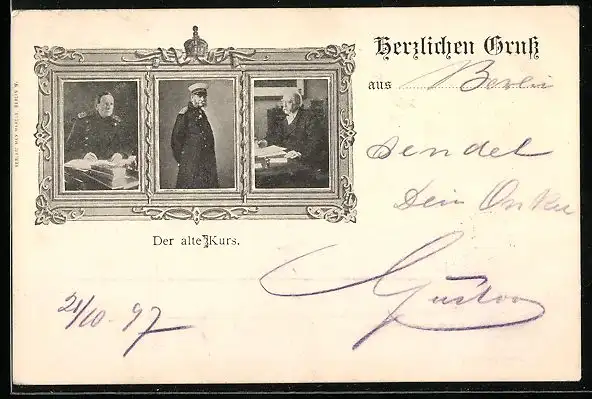 Herzlichen Gruß
aus Berlin
sendet
Dein Onkel
Gustav
Der alte Kurs.
21/10 - 97